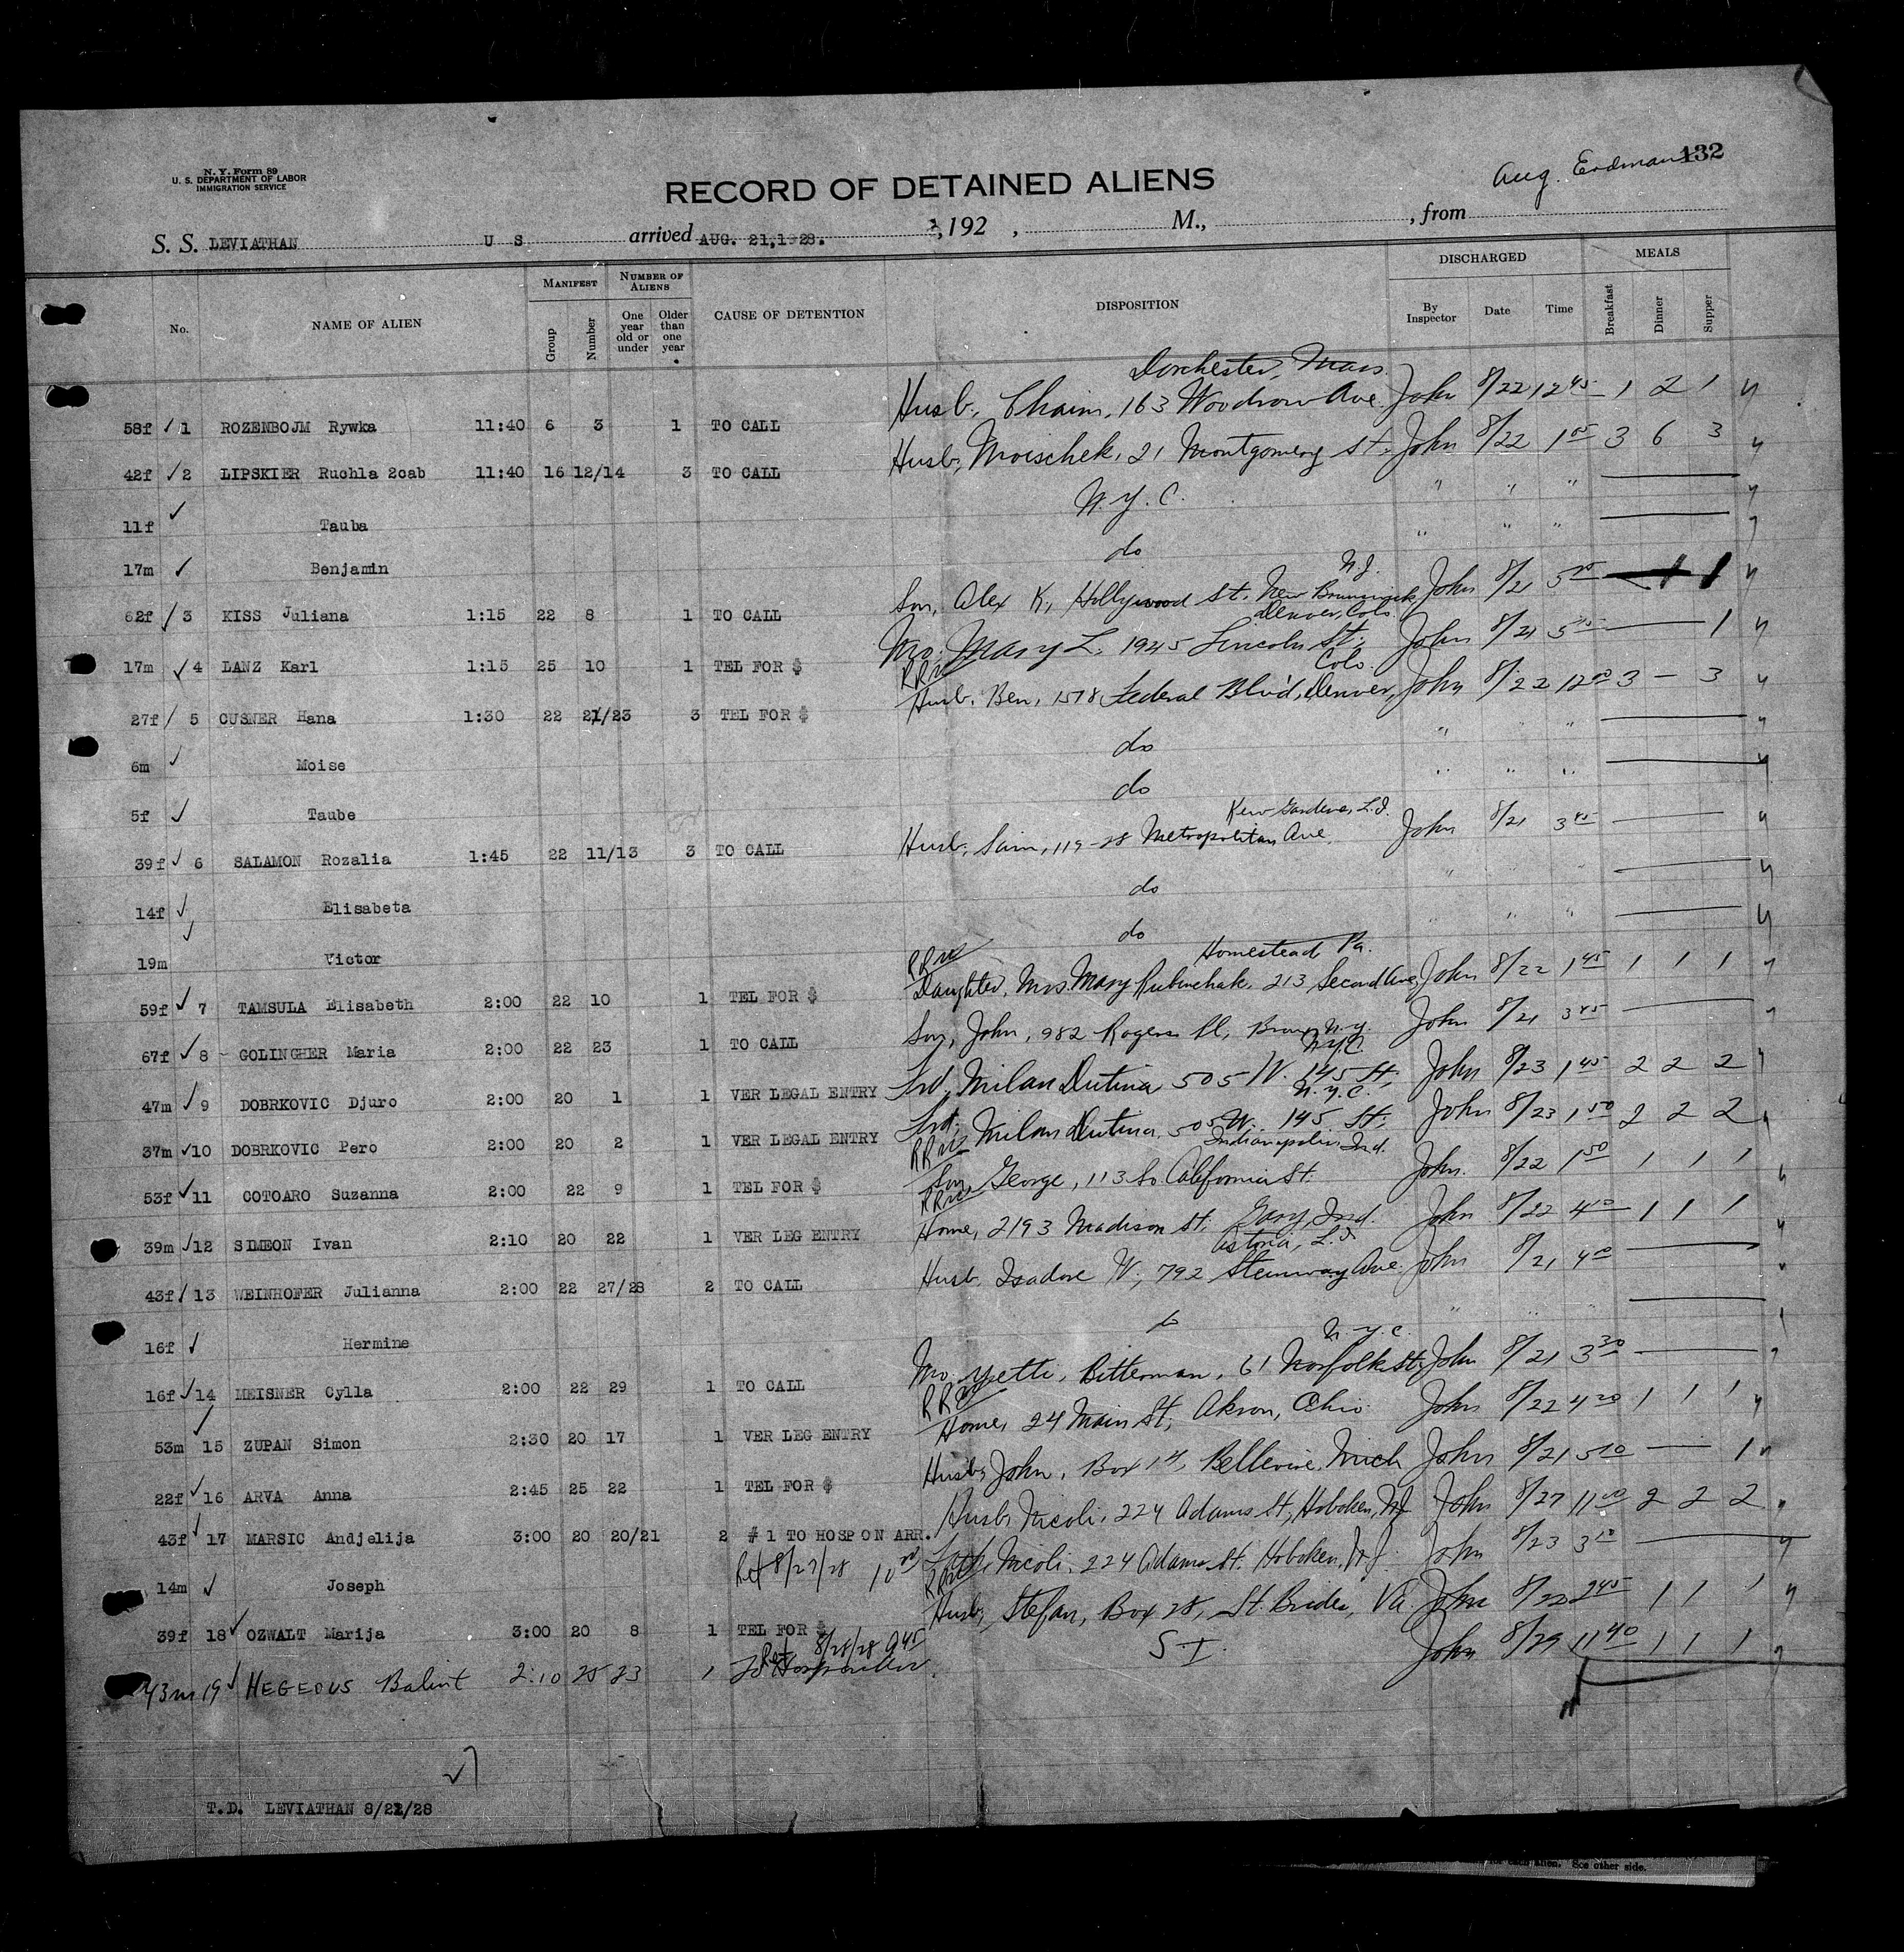 N. Y. Form 89
U. S. DEPARTMENT OF LABOR
IMMIGRATION SERVICE
RECORD OF DETAINED ALIENS
Aug. Erdman 132
S. S. LEVIATHAN U S arrived AUG. 21, 1928. , 192 , M., , from
No. NAME OF ALIEN MANIFEST Group Number NUMBER OF ALIENS One year old or under Older than one year CAUSE OF DETENTION DISPOSITION DISCHARGED By Inspector Date Time MEALS Breakfast Dinner Supper
Dorchester, Mass.
58f ✓ 1 ROZENBOJM Rywka 11:40 6 3 1 TO CALL Husb, Chaim, 163 Woodrow Ave. John 8/22 12 45 1 2 1
42f ✓ 2 LIPSKIER Ruchla 2cab 11:40 16 12/14 3 TO CALL Husb, Moischek, 21 Montgomery St, John 8/22 1 05 3 6 3
11f ✓ Tauba N.Y.C. " " "
17m ✓ Benjamin do " " "
N.J.
62f / 3 KISS Juliana 1:15 22 8 1 TO CALL Son, Alex K, Hollywood St, New Brunswick John 8/21
Denver, Colo.
17m ✓ 4 LANZ Karl 1:15 25 10 1 TEL FOR $ Mo: Mary L. 1945 Lincoln St; John 8/21 1
RR Colo.
27f / 5 CUSNER Hana 1:30 22 21/23 3 TEL FOR $ Husb. Ben, 1578 Federal Blvd, Denver, John 8/22 12 00 3 — 3
6m ✓ Moise do " " "
5f ✓ Taube do " " "
Kew Gardens, L.I.
39f ✓ 6 SALAMON Rozalia 1:45 22 11/13 3 TO CALL Husb, Sam, 119-28 Metropolitan Ave. John 8/21 3 45
14f ✓ Elisabeta do "
19m ✓ Victor do " " "
RR Homestead Pa.
59f ✓ 7 TAMSULA Elisabeth 2:00 22 10 1 TEL FOR $ Daughter, Mrs. Mary 213 Second Ave, John 8/22 1 45 1 1 1
67f ✓ 8 GOLINGHER Maria 2:00 22 23 1 TO CALL Son, John, 982 Rogers Pl, Bronx N.Y. John 8/21 3 45
N.Y.C.
47m ✓ 9 DOBRKOVIC Djuro 2:00 20 1 1 VER LEGAL ENTRY Frd, Milan Dutina 505 W. 145 St, John 8/23 1 45 2 2 2
N.Y.C.
37m ✓ 10 DOBRKOVIC Pero 2:00 20 2 1 VER LEGAL ENTRY Frd. Milan Dutina, 505 W. 145 St; John 8/23 1 50 2 2 2
RR Indianapolis Ind.
53f ✓ 11 COTOARO Suzanna 2:00 22 9 1 TEL FOR $ Son, George, 113 So. California St. John. 8/22 1 50 1 1 1
RR
39m ✓ 12 SIMEON Ivan 2:10 20 22 1 VER LEG ENTRY Home, 2193 Madison St, Gary, Ind. John 8/22 4 10 1 1 1
Astoria, L.I.
43f / 13 WEINHOFER Julianna 2:00 22 27/28 2 TO CALL Husb, Isadore W, 792 Steinway Ave. John 8/21 4 00
16f ✓ Hermine do " " "
N.Y.C.
16f ✓ 14 MEISNER Cylla 2:00 22 29 1 TO CALL Mo. Yetti, Bitterman, 61 Norfolk St; John 8/21 3 30
RR
53m ✓ 15 ZUPAN Simon 2:30 20 17 1 VER LEG ENTRY Home, 24 Main St, Akron, Ohio John 8/22 4 20 1 1 1
22f ✓ 16 ARVA Anna 2:45 25 22 1 TEL FOR $ Husb, John, Box 14, Bellevue, Mich John 8/21 5 10 — 1
43f ✓ 17 MARSIC Andjelija 3:00 20 20/21 2 #1 TO HOSP ON ARR. Husb, Nicoli, 224 Adams St, Hoboken, NJ John 8/27 11 00 2 2 2
14m ✓ Joseph Ret 8/27/28 10 Fath, Nicoli, 224 Adams St. Hoboken, N.J. John 8/23 3 10
RR
39f 18 ✓ OZWALT Marija 3:00 20 8 1 TEL FOR $ Husb, Stefan, Box 28, St. Brides, Va. John 8/22 2 45 1 1 1
Ret 8/28/28 9 45
43m 19 ✓ HEGEDUS Balint 2:10 25 23 1 To Hosp on Arr. S-I John 8/29 11 40 1 1 1
T.D. LEVIATHAN 8/21/28
See other side.